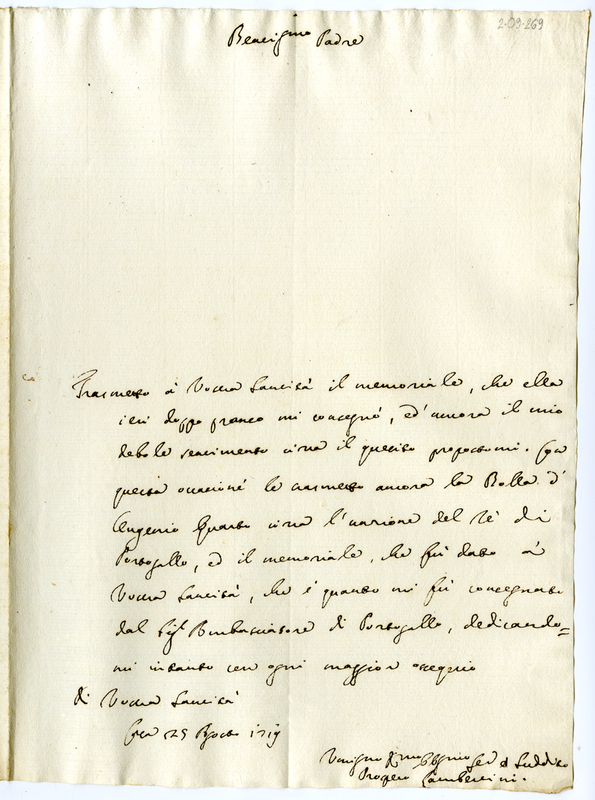 2-09-269
Padre
Trasmetto à Vostra Santità il memoriale, che ella
ieri doppo pranzo mi consegnò, ed' ancora il mio
debole sentimento circa il quesito propostomi. Con
questa occasione le trasmetto ancora la Bolla d'
Eugenio Quarto circa l'unzione del Rè di
Portogallo, ed il memoriale, che fù dato à
Vostra Santità, che è quanto mi fù consegnato
dal Sigr Ambasciatore di Portogallo, dedicando=
mi intanto con ogni maggior ossequio
di Vostra Santità
25 Agosto
Ser e Suddito
Prospero Lambertini.